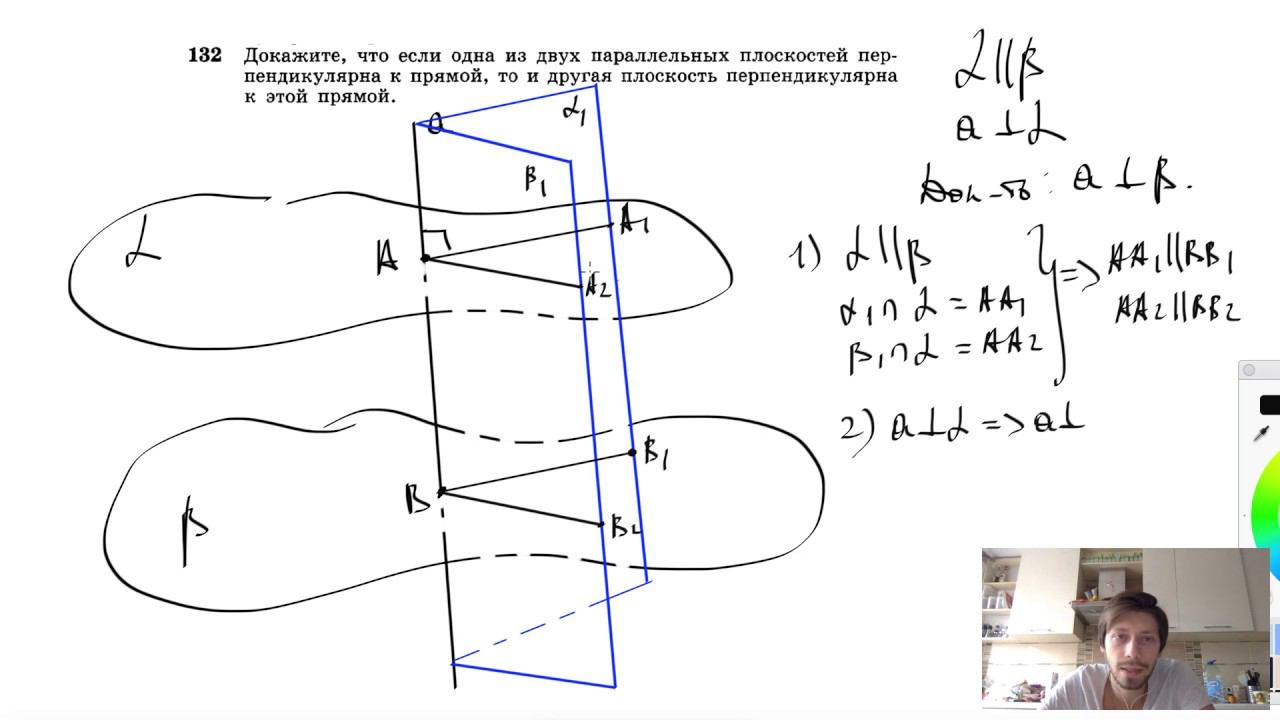 132 Докажите, что если одна из двух параллельных плоскостей пер-
пендикулярна к прямой, то и другая плоскость перпендикулярна
к этой прямой.
α ∥ β
a ⊥ α
Док-ть: a ⊥ β.
a
α₁
β₁
α
A
A₁
A₂
1) α ∥ β
α₁ ∩ α = AA₁
β₁ ∩ α = AA₂
} => AA₁ ∥ BB₁
AA₂ ∥ BB₂
2) a ⊥ α => a ⊥
β
B
B₁
B₂